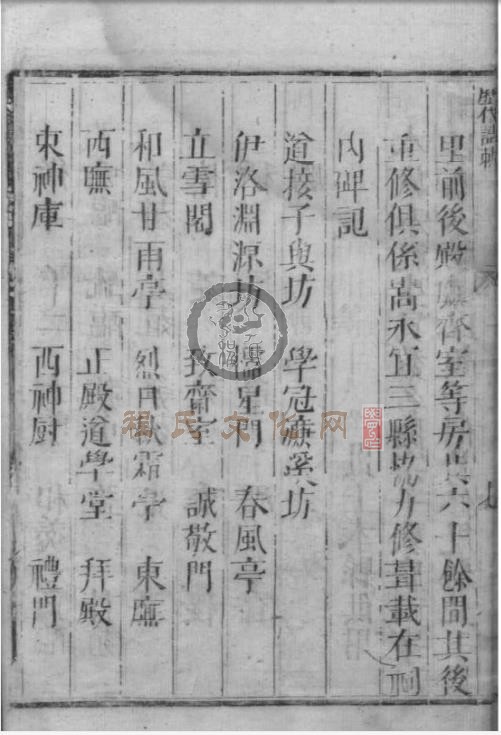 歷代
里前後殿廡齊室等房共六十餘間其後
重修俱係嵩永宜三縣協力修葺載在祠
內碑記
道接子輿坊　學冠濂溪坊
伊洛淵源坊　櫺星門　春風亭
立雪閣　致齋室　誠敬門
和風甘雨亭　烈日秋霜亭　東廡
西廡　正殿道學堂　拜殿
東神庫　西神厨　禮門
程氏文化网